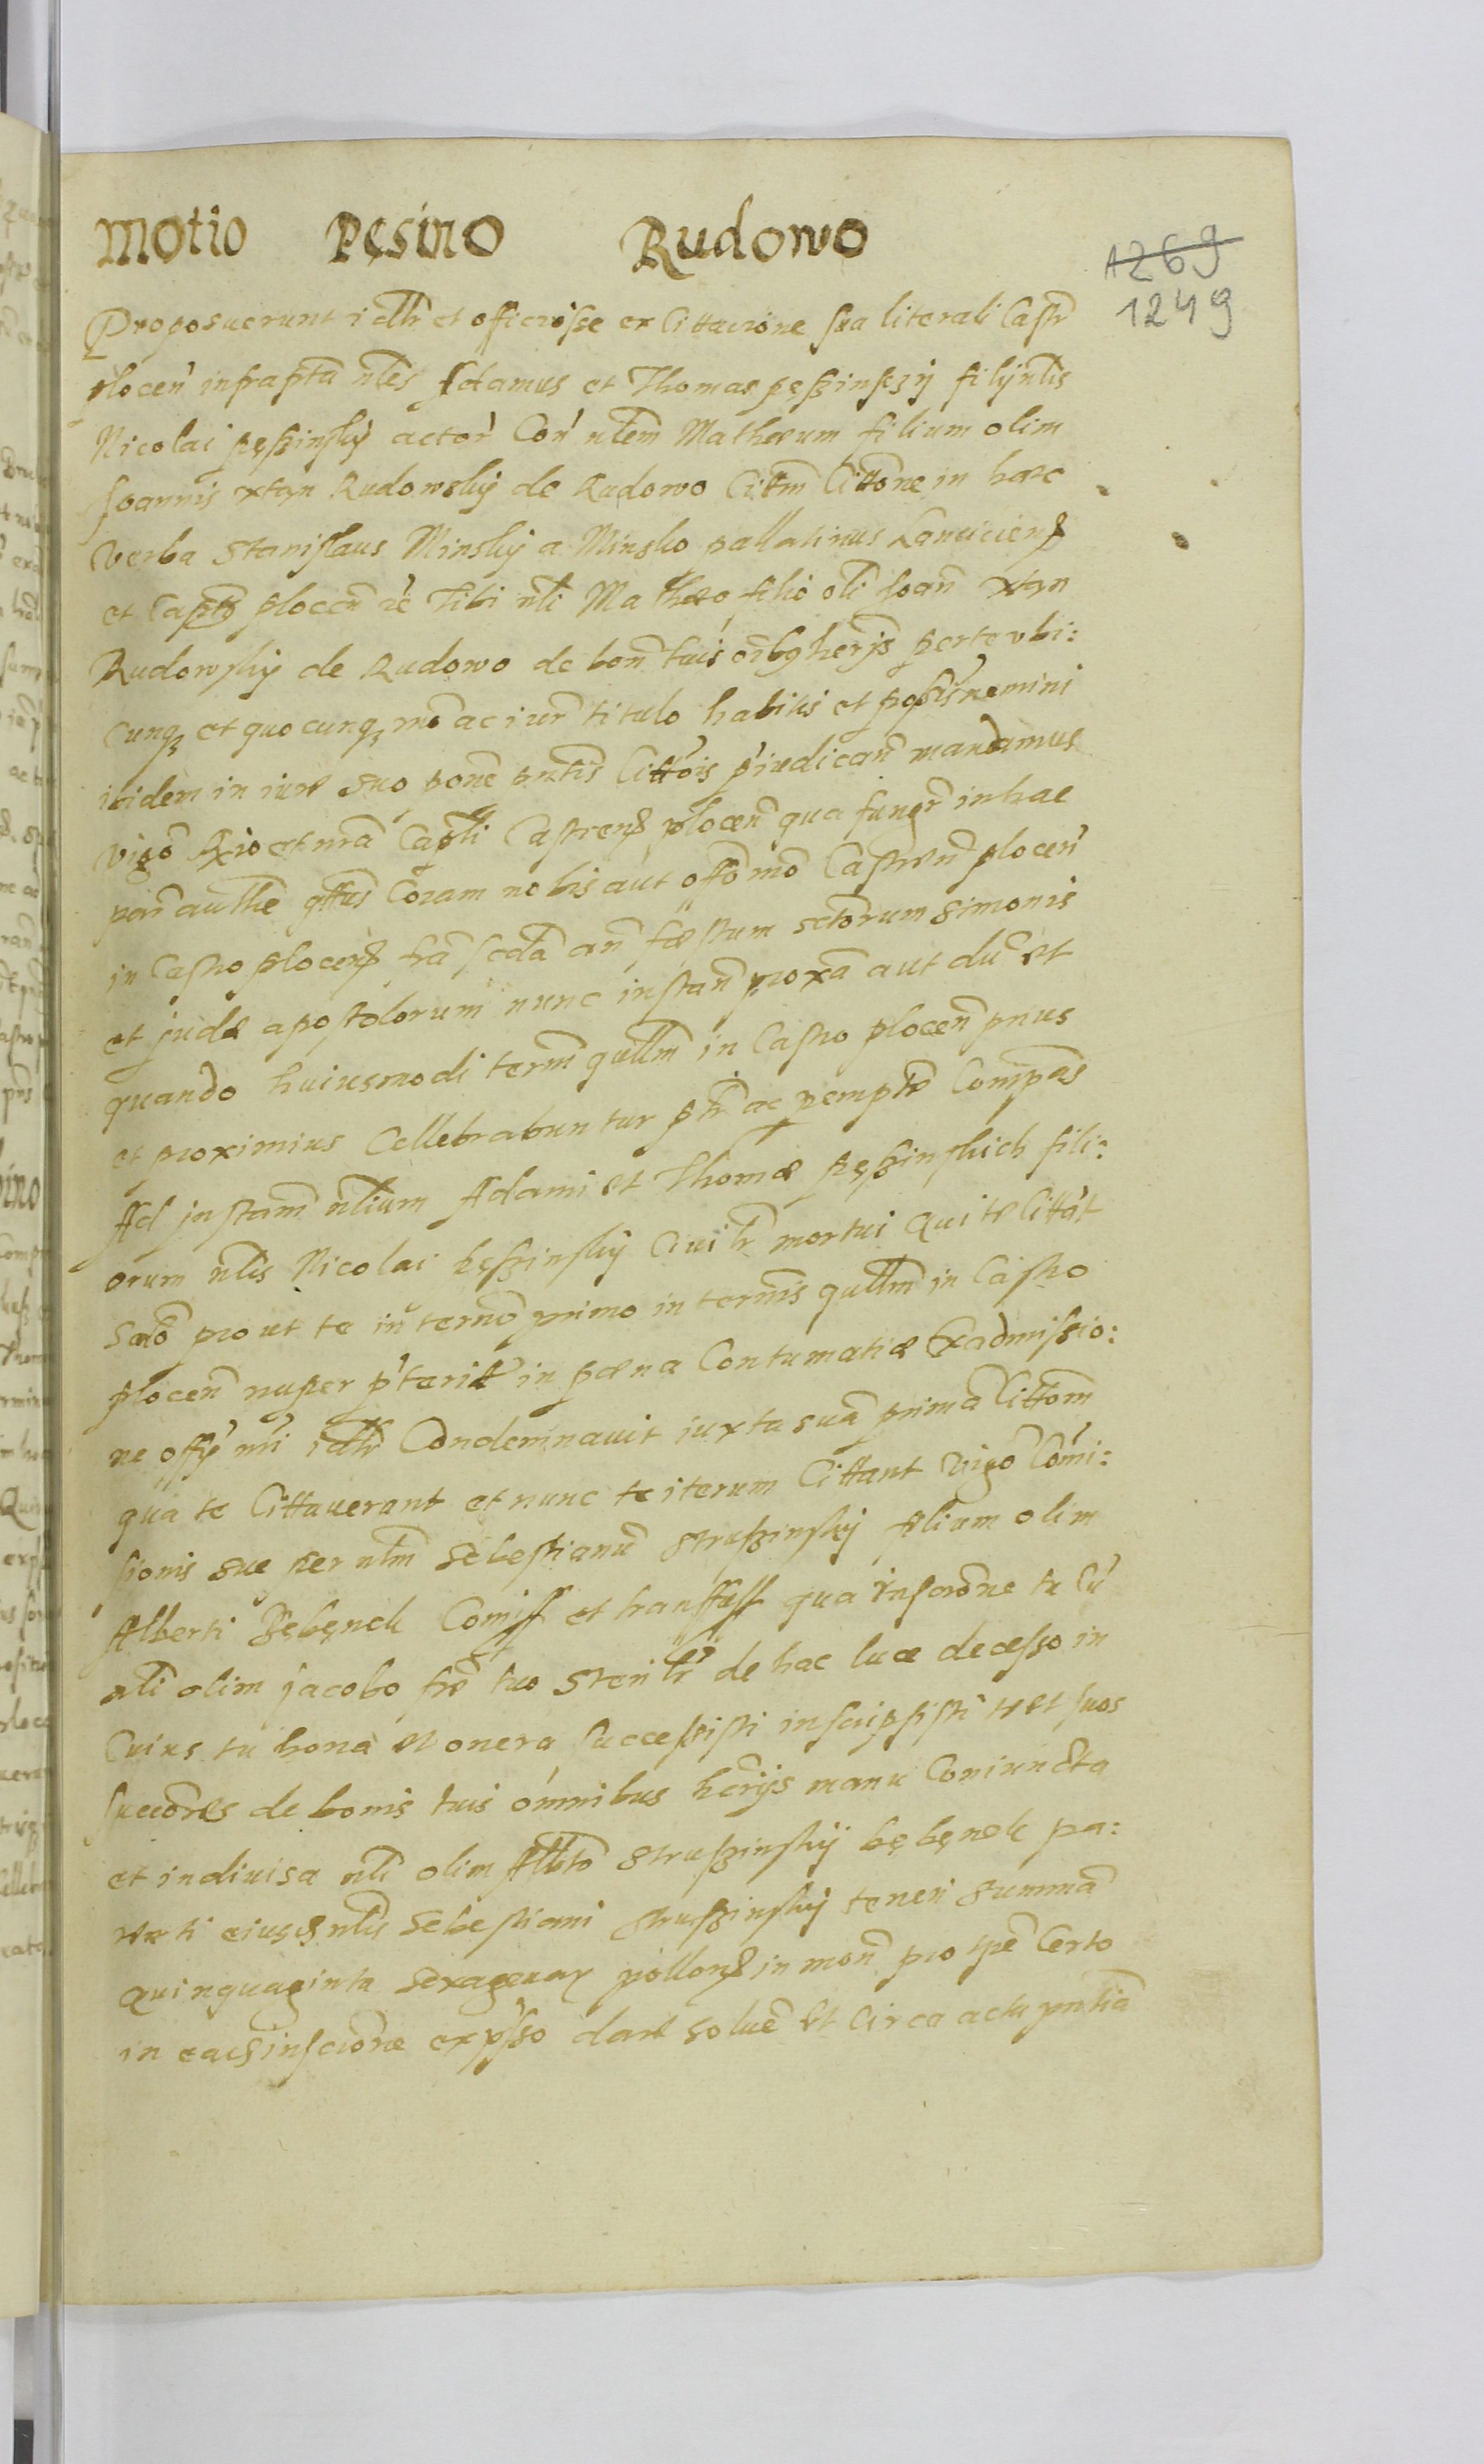 Motio Pęsino Rudowo
1269
1249
Proposuerunt iudlr et officiosse ex Cittacione sua literali Castr
plocen infraptu nles Adamus et Thomas pęßinsczÿ filÿ nlis
Nicolai pęßinskÿ actor Con nlem Matheum filium olim
Joannis xtqn Rudowskÿ de Rudowo Cittm Cittone in haec
verba Stanislaus Minskÿ a Minsko pallatinus Lanciciens
et Captus plocen rc Tibi nli Matheo filio oli Joan xtqn
Rudowskÿ de Rudowo de bon tuis oibq herÿs per te vbi:
cunq et quocunq mo ac iur titulo habitis et possis nemini
ibidem in iure suo pone pntis Cittois piudican mandamus
vigo Rxio et nra Capli Castrens plocen qua fungr in hac
par authe qttus Coram nobis aut offo nro Castren plocen
in Castro plocens fra scda an festum sctorum Simonis
et Judæ apostolorum nunc instan proxa aut du et
quando huiusmodi term qullm in Castro plocen pnus
et proximius Cellebrabuntur ptr ac pempte Compas
Ad instam nlium Adami et Thomæ pęßinskich fili:
orum nlis Nicolai pęßinskÿ Civilr mortui qui te Cittat
scdo prout te in terno primo in ternis qullm in Castro
plocen nuper pterit in pæna Contumatiæ Ex admissio:
ne offÿ nri idlr Condemnauit iuxta sua prima Cittom
qua te Cittauerant et nunc te iterum Cittant vigo Comi:
sionis sue per nlm Sebestianu Strußinskÿ filium olim
Alberti Bębęnek Comiss et transfuss qua Inscrone tu Cu
nli olim Jacobo fre tuo Sterilr de hac luce decesso in
Cuius tu bona et onera Successisti inscripsisti te et suos
succores de bonis tuis omnibus herijs manu Coniuncta
et indiuisa nli olim Albto Strußinskÿ bębęnek pa:
renti eiusd nlis Sebestiani Strußinskÿ teneri Summa
quinquaginta Sexagenar pollons in mon pro tpe Certo
in eads inscrone expsso dare solue et Circa actu pntia